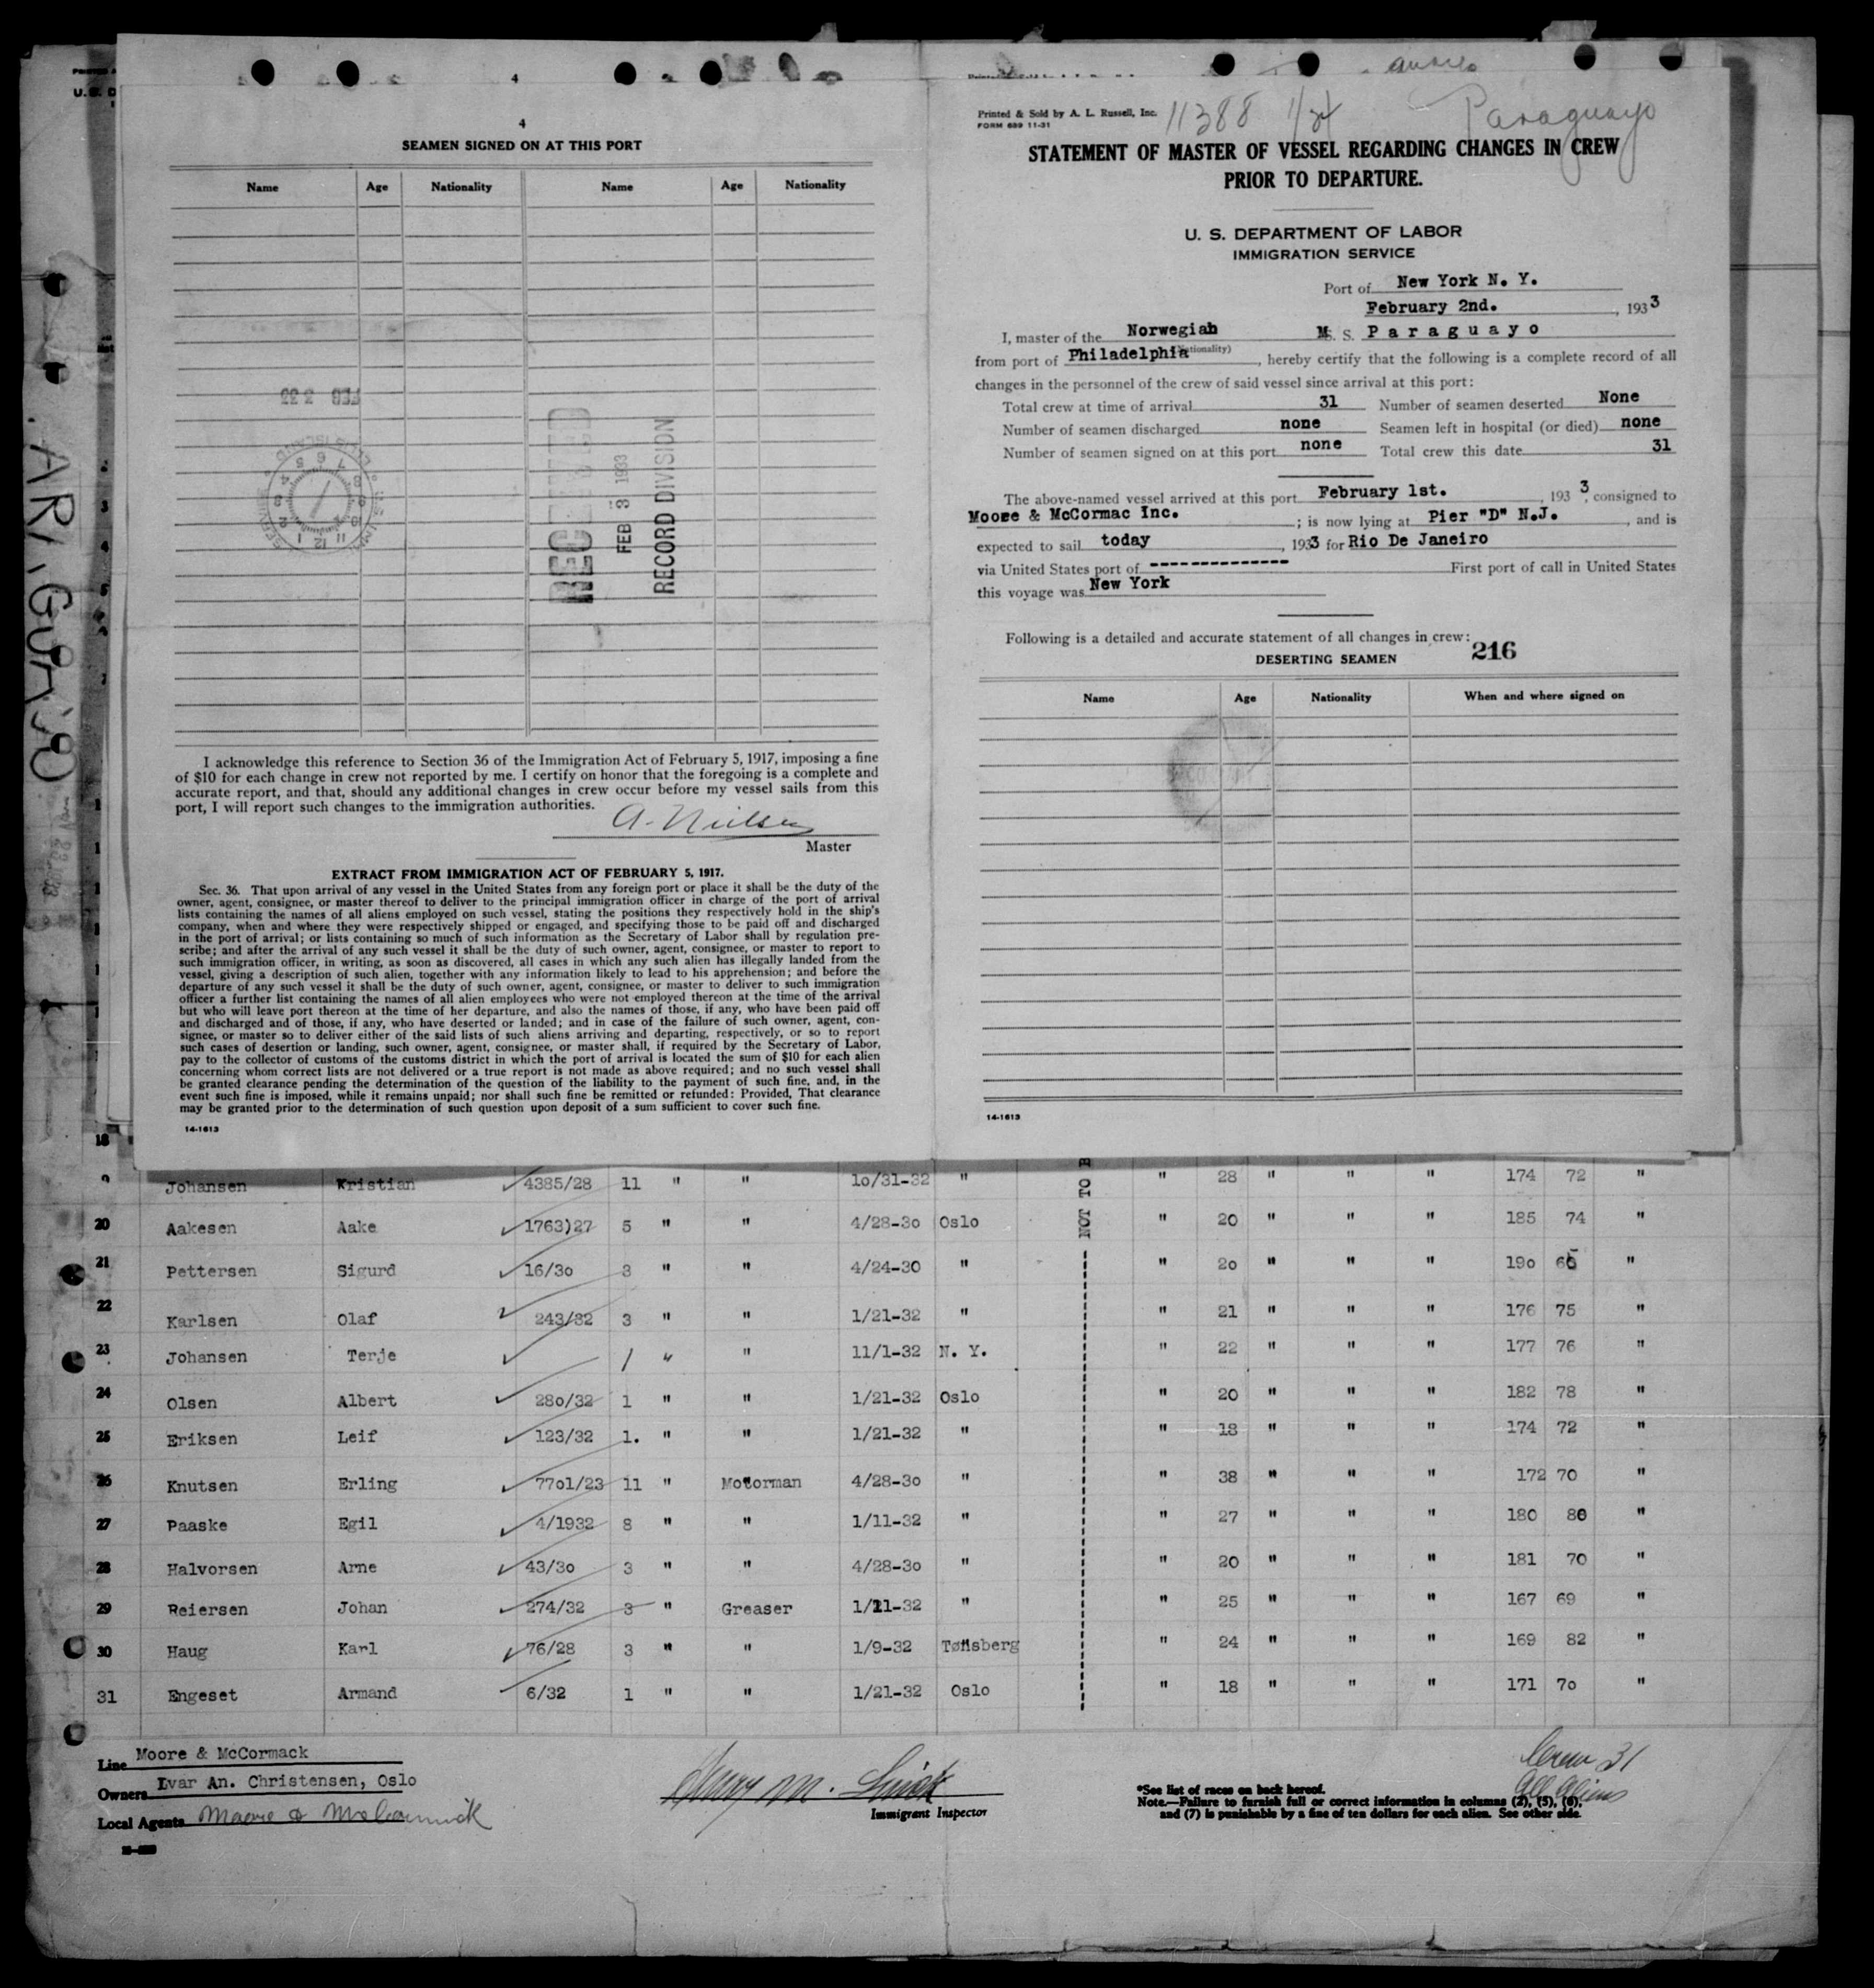 4
4
SEAMEN SIGNED ON AT THIS PORT
Name Age Nationality Name Age Nationality
FEB 2 33
RECEIVED
FEB 3 1933
RECORD DIVISION
I acknowledge this reference to Section 36 of the Immigration Act of February 5, 1917, imposing a fine
of $10 for each change in crew not reported by me. I certify on honor that the foregoing is a complete and
accurate report, and that, should any additional changes in crew occur before my vessel sails from this
port, I will report such changes to the immigration authorities.
A. Nielsen
Master
EXTRACT FROM IMMIGRATION ACT OF FEBRUARY 5, 1917.
Sec. 36. That upon arrival of any vessel in the United States from any foreign port or place it shall be the duty of the
owner, agent, consignee, or master thereof to deliver to the principal immigration officer in charge of the port of arrival
lists containing the names of all aliens employed on such vessel, stating the positions they respectively hold in the ship's
company, when and where they were respectively shipped or engaged, and specifying those to be paid off and discharged
in the port of arrival; or lists containing so much of such information as the Secretary of Labor shall by regulation pre-
scribe; and after the arrival of any such vessel it shall be the duty of such owner, agent, consignee, or master to report to
such immigration officer, in writing, as soon as discovered, all cases in which any such alien has illegally landed from the
vessel, giving a description of such alien, together with any information likely to lead to his apprehension; and before the
departure of any such vessel it shall be the duty of such owner, agent, consignee, or master to deliver to such immigration
officer a further list containing the names of all alien employees who were not employed thereon at the time of the arrival
but who will leave port thereon at the time of her departure, and also the names of those, if any, who have been paid off
and discharged and of those, if any, who have deserted or landed; and in case of the failure of such owner, agent, con-
signee, or master so to deliver either of the said lists of such aliens arriving and departing, respectively, or so to report
such cases of desertion or landing, such owner, agent, consignee, or master shall, if required by the Secretary of Labor,
pay to the collector of customs of the customs district in which the port of arrival is located the sum of $10 for each alien
concerning whom correct lists are not delivered or a true report is not made as above required; and no such vessel shall
be granted clearance pending the determination of the question of the liability to the payment of such fine, and, in the
event such fine is imposed, while it remains unpaid; nor shall such fine be remitted or refunded: Provided, That clearance
may be granted prior to the determination of such question upon deposit of a sum sufficient to cover such fine.
14-1613
Printed & Sold by A. L. Russell, Inc.
FORM 689 11-31
11388 Paraguayo
STATEMENT OF MASTER OF VESSEL REGARDING CHANGES IN CREW
PRIOR TO DEPARTURE.
U. S. DEPARTMENT OF LABOR
IMMIGRATION SERVICE
Port of New York N. Y.
February 2nd. , 1933
I, master of the Norwegian M. S. Paraguayo
(Nationality)
from port of Philadelphia , hereby certify that the following is a complete record of all
changes in the personnel of the crew of said vessel since arrival at this port:
Total crew at time of arrival 31 Number of seamen deserted None
Number of seamen discharged none Seamen left in hospital (or died) none
Number of seamen signed on at this port none Total crew this date 31
The above-named vessel arrived at this port February 1st. , 1933, consigned to
Moore & McCormac Inc. ; is now lying at Pier "D" N.J. , and is
expected to sail today , 1933 for Rio De Janeiro
via United States port of --------------- First port of call in United States
this voyage was New York
Following is a detailed and accurate statement of all changes in crew:
216
DESERTING SEAMEN
Name Age Nationality When and where signed on
14-1613
18
9 Johansen Kristian 4385/28 11 " " 10/31-32 " " 28 " " " 174 72 "
20 Aakesen Aake 1763)27 5 " " 4/28-30 Oslo " 20 " " " 185 74 "
21 Pettersen Sigurd 16/30 3 " " 4/24-30 " " 20 " " " 190 65 "
22 Karlsen Olaf 243/32 3 " " 1/21-32 " " 21 " " " 176 75 "
23 Johansen Terje 1 " " 11/1-32 N. Y. " 22 " " " 177 76 "
24 Olsen Albert 280/32 1 " " 1/21-32 Oslo " 20 " " " 182 78 "
25 Eriksen Leif 123/32 1. " " 1/21-32 " " 18 " " " 174 72 "
26 Knutsen Erling 7701/23 11 " Motorman 4/28-30 " " 38 " " " 172 70 "
27 Paaske Egil 4/1932 8 " " 1/11-32 " " 27 " " " 180 80 "
28 Halvorsen Arne 43/30 3 " " 4/28-30 " " 20 " " " 181 70 "
29 Reiersen Johan 274/32 3 " Greaser 1/21-32 " " 25 " " " 167 69 "
30 Haug Karl 76/28 3 " " 1/9-32 Tønsberg " 24 " " " 169 82 "
31 Engeset Armand 6/32 1 " " 1/21-32 Oslo " 18 " " " 171 70 "
NOT TO B
Line Moore & McCormack
Owners Ivar An. Christensen, Oslo
Local Agents Moore & McCormick
Immigrant Inspector
Crew 31
All Aliens
*See list of races on back hereof.
Note.—Failure to furnish full or correct information in columns (2), (5), (6),
and (7) is punishable by a fine of ten dollars for each alien. See other side.